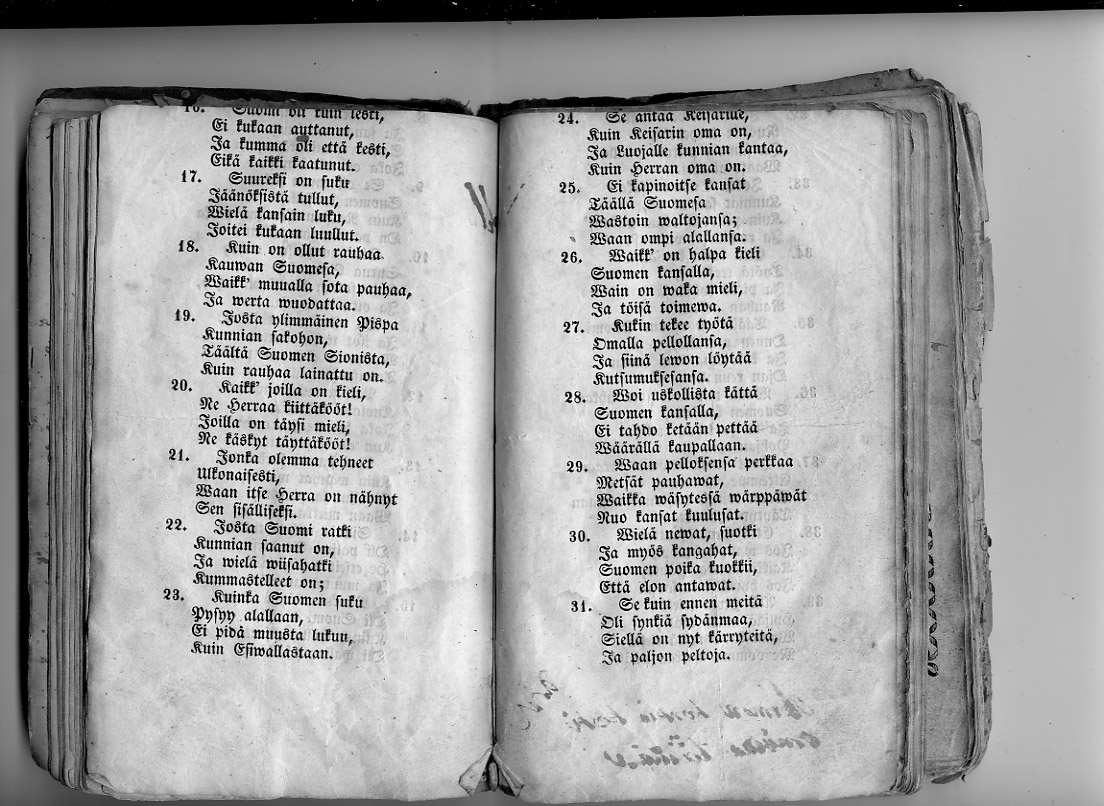 16. Suomi oli kuin testi,
Ei kukaan auttanut,
Ja kumma oli että kesti,
Eikä kaikki kaatunut.
17. Suureksi on suku
Jäänöksistä tullut,
Wielä kansain luku,
Joitei kukaan luullut.
18. Kuin on ollut rauhaa
Kauwan Suomesa,
Waikk' muualla sota pauhaa,
Ja werta wuodattaa.
19. Josta ylimmäinen Pispa
Kunnian sakohon,
Täältä Suomen Sionista,
Kuin rauhaa lainattu on.
20. Kaikk' joilla on kieli,
Ne Herraa kiittäkööt!
Joilla on täysi mieli,
Ne käskyt täyttäkööt!
21. Jonka olemma tehneet
Ulkonaisesti,
Waan itse Herra on nähnyt
Sen sisälliseksi.
22. Josta Suomi ratki
Kunnian saanut on,
Ja wielä wiisahatki
Kummastelleet on;
23. Kuinka Suomen suku
Pysyy alallaan,
Ei pidä muusta lukuu,
Kuin Esiwallastaan.
24. Se antaa Keisarille,
Kuin Keisarin oma on,
Ja Luojalle kunnian kantaa,
Kuin Herran oma on.
25. Ei kapinoitse kansat
Täällä Suomesa
Wastoin waltojansa;
Waan ompi alallansa.
26. Waikk' on halpa kieli
Suomen kansalla,
Wain on waka mieli,
Ja töisä toimewa.
27. Kukin tekee työtä
Omalla pellollansa,
Ja siinä lewon löytää
Kutsumuksesansa.
28. Woi uskollista kättä
Suomen kansalla,
Ei tahdo ketään pettää
Wäärällä kaupallaan.
29. Waan pelloksensa perkkaa
Metsät pauhawat,
Waikka wäsytessä wärppäwät
Nuo kansat kuulusat.
30. Wielä newat, suotki
Ja myös kangahat,
Suomen poika kuokkii,
Että elon antawat.
31. Se kuin ennen meitä
Oli synkiä sydänmaa,
Siellä on nyt kärryteitä,
Ja paljon peltoja.